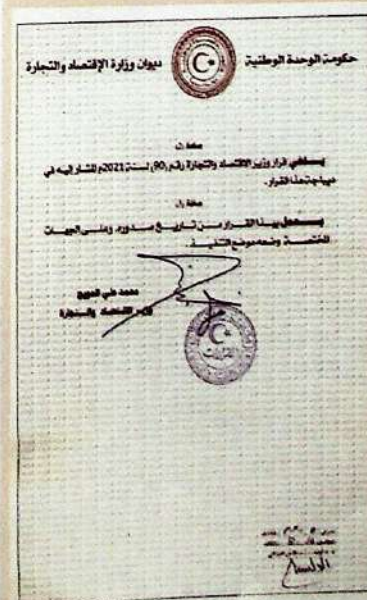 حكومة الوحدة الوطنية
ديوان وزارة الإقتصاد والتجارة
يلغي قرار وزير الاقتصاد والتجارة رقم (90) لسنة 2021م المشار إليه في
ديباجة هذا القرار.
يعمل بهذا القرار من تاريخ صدوره وعلى الجهات
المختصة وضعه موضع التنفيذ.
محمد علي الحويج
وزير الاقتصاد والتجارة